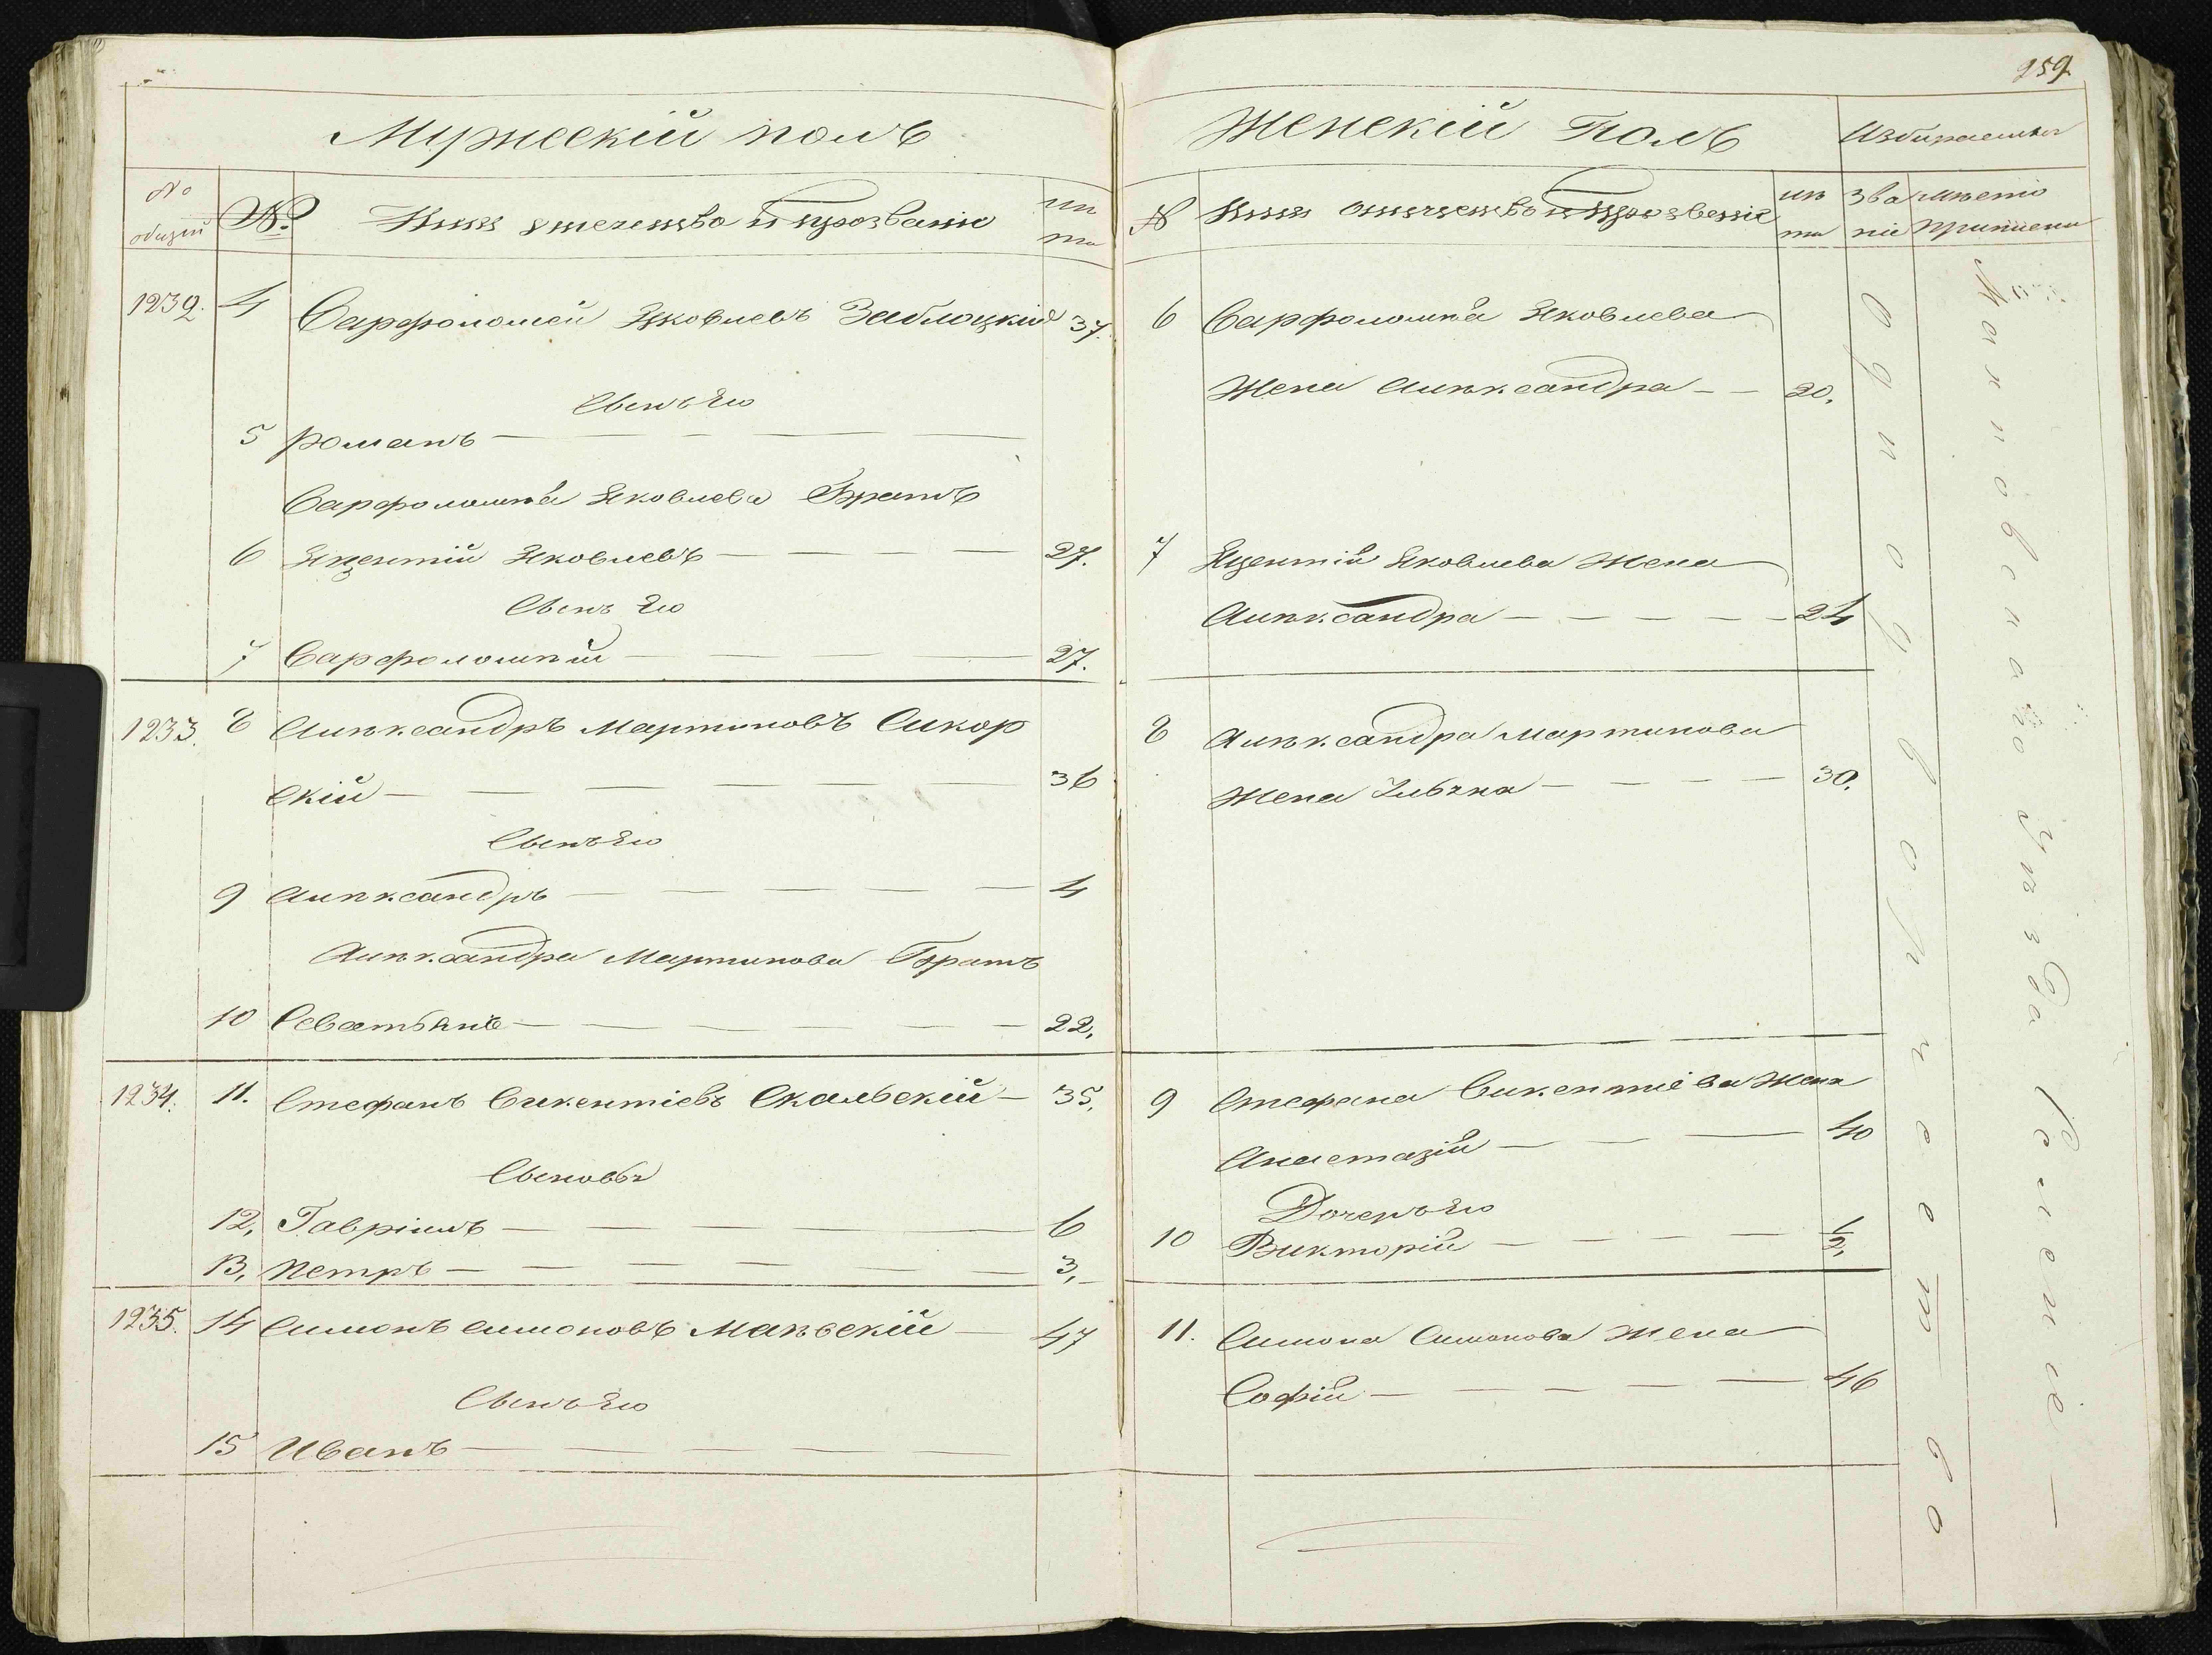 Мужескій полъ
№ общій
№.
Имя отечество и прозваніе
лѣ та
1232. 4 Варфоломей Яковлевъ Заблоцкій 37.
Сынъ Его
5 Романъ — — — — —
Варфоломѣа Яковлева Братъ
6 Яцентій Яковлевъ — — — — 27.
Сынъ Его
7 Варфоломѣй — — — — 27.
1233. 8 Алѣксандръ Мартиновъ Сикор
скій — — — — — — 36
Сынъ Его
9 Алѣксандръ — — — — — 4
Алѣксандра Мартинова Братъ
10 Севатьянъ — — — — 22,
1234. 11. Стефанъ Викентіевъ Скальскій — 35,
Сыновья
12, Гавріилъ — — — — 6
13, Петръ — — — — — — 3,
1235. 14 Симонъ Симоновъ Маньвскій — 47
Сынъ Его
15 Иванъ — — — —
259
Женскій Полъ
Избираемыя
№
Имя отечество и прозвеніе
лѣ та
Зва ніе
мѣсто приписки
6 Варфоломѣа Яковлева
Жена Алѣксандра — — 20.
7 Яцентій Яковлева Жена
Алѣксандра — — — — — 24
8 Алѣксандра Мартинова
Жена — — — — 30.
9 Стефана Викентіева Жена
Анастазій — — — 40
Дочеръ Его
10 Викторій — — — — 1/2,
11. Симона Симонова Жена
Софій — — — — — 46
Однодворчество
Махновскаго Уѣзда Селеніе —